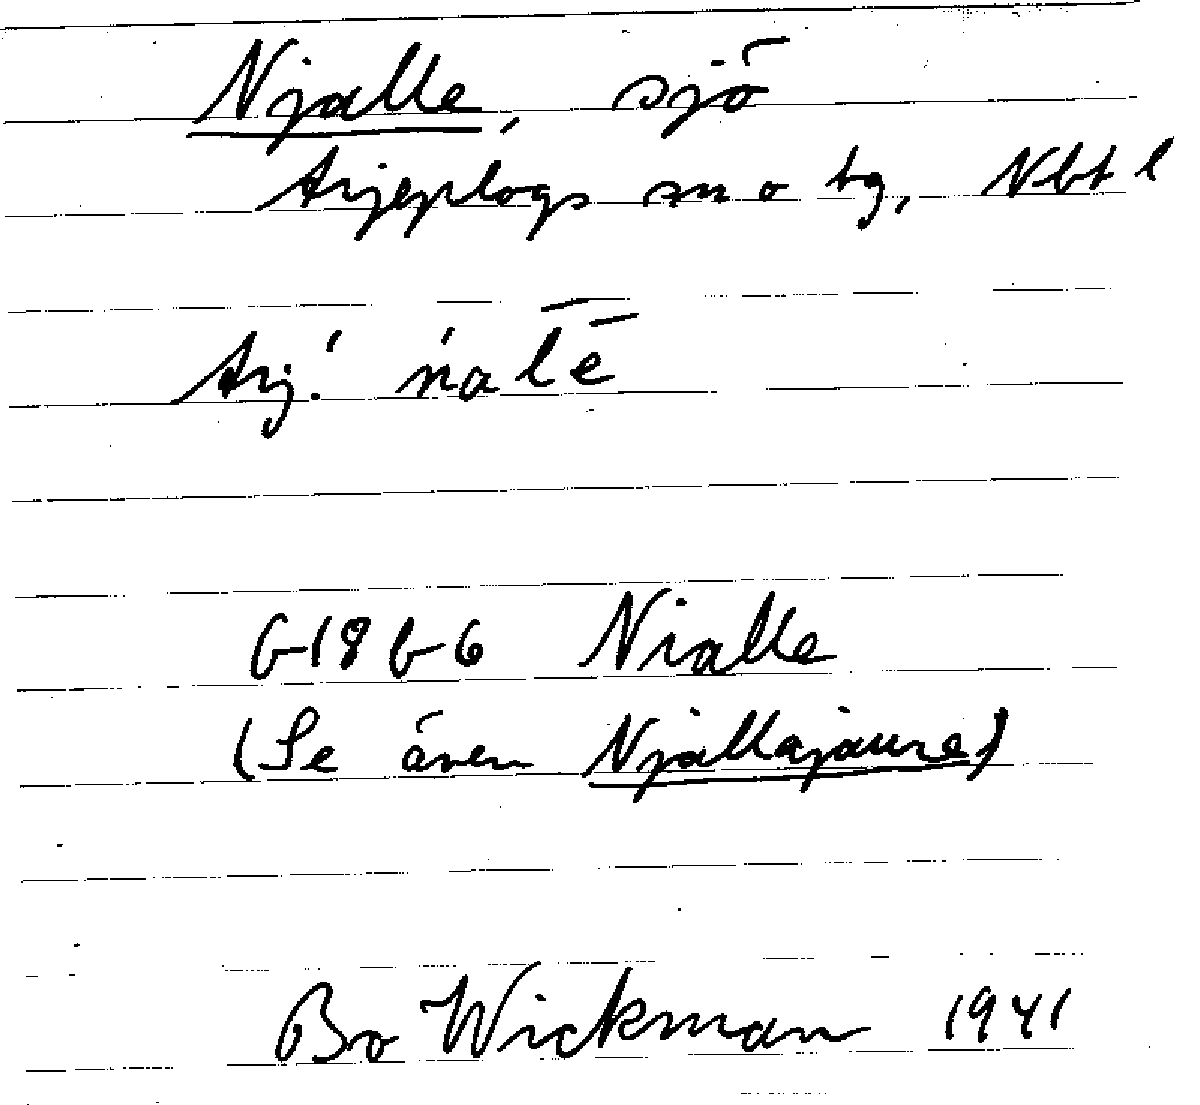 Njalle, sjö
Arjeplogs sn o tg, Nbt l
Arj: ńal̄ē
G18b6 Nialle
(Se även Njallajaure)
Bo Wickman 1941